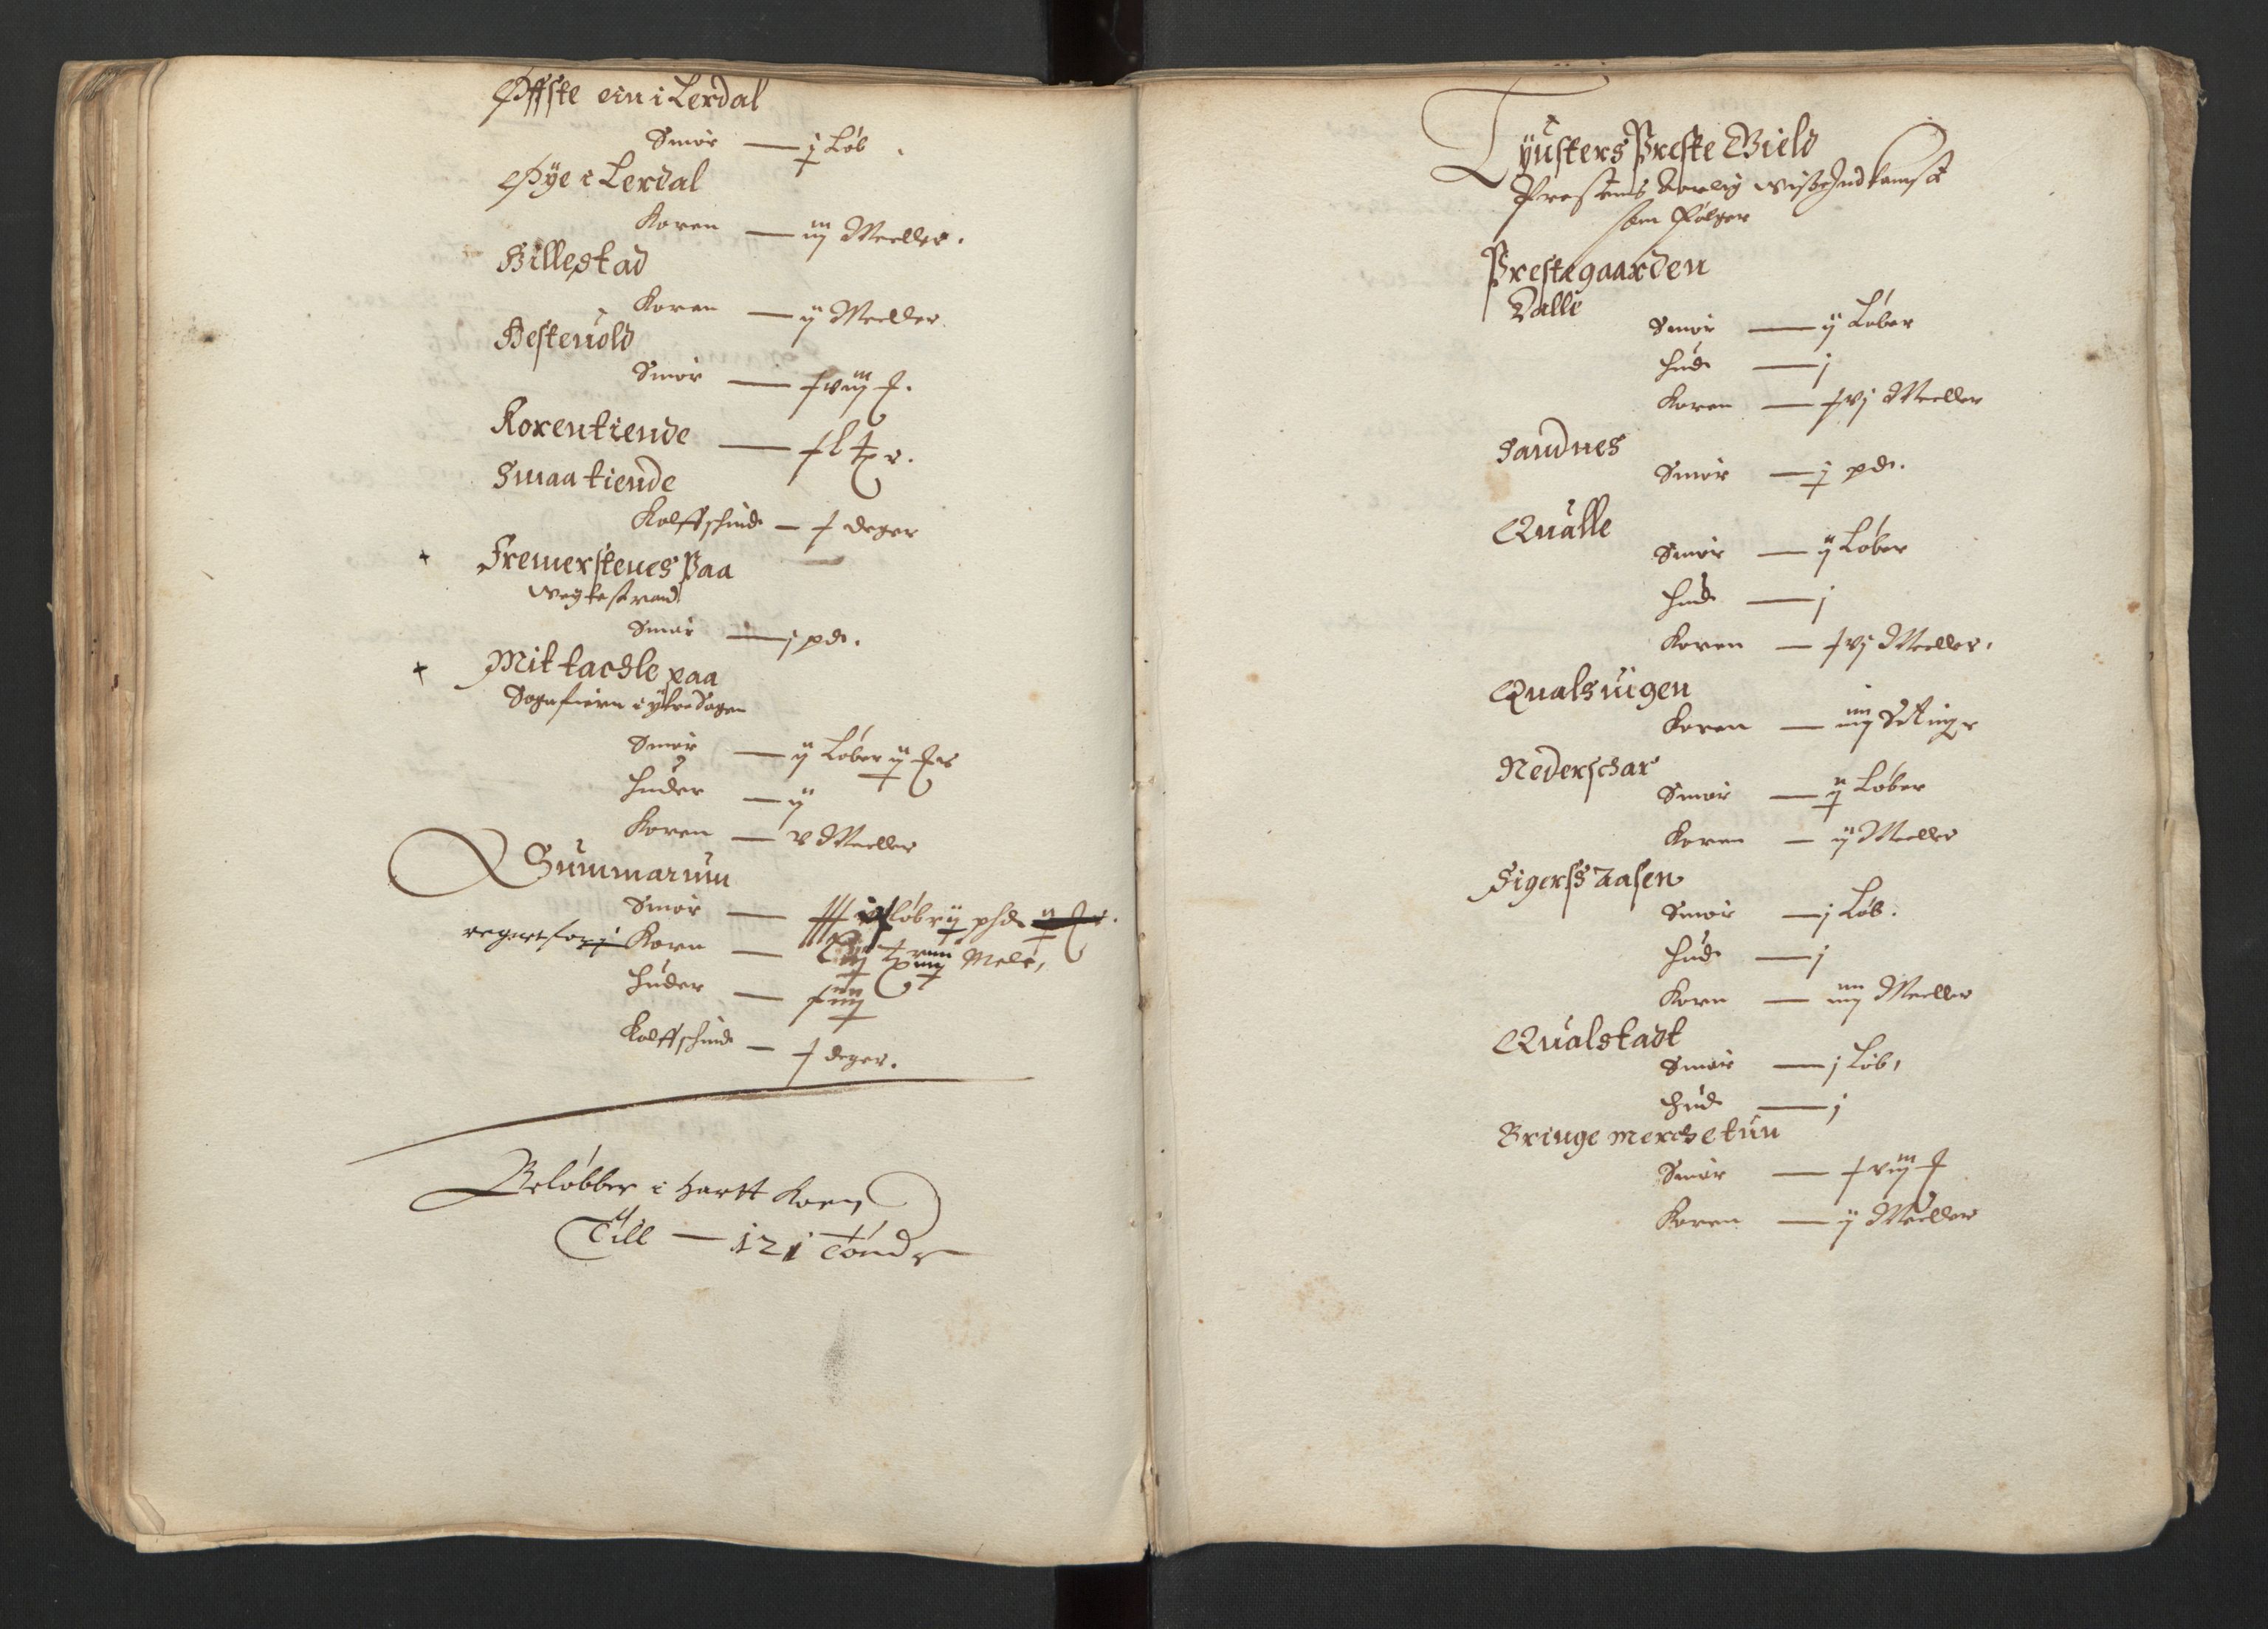 Øffste ein i Lerdal
Smør — j Løb
Øÿe i Lerdal
Koren — iij Meeller.
Hillestad
Koren — ij Meeller
Hesteuold
Smør — xviij
Korentiende — xl
Smaatiende
Kalffschind — j deger
Fremerstenes Paa
Smør — j pd.
Mit tachle paa
Smør — ij Løber ij
Huder — ij
Koren — v Meeller
Summarum
Smør — Løber ij
Korn — Mele,
Huder —
Kalffschind — j deger.
Beløbber i hartt Korn
Till — 121 Tønd
Tÿusters Preste Gield
Prestens Aarlig wisse Indkomst
som følger
Prestegaarden
Dalle
Smør — ij Løber
Hud — j
Koren — xvj Meeller
Sandnes
Smør — j pd.
Qualle
Smør — ij Løber
Hud — j
Koren — xvj Meeller.
Qualsuigen
Koren — iiij
Nederschar
Smør — ij Løber
Koren — ij Meeller
Sigerss Aasen
Smør — j Løb.
Hud — j
Korn — iiij Meeller
Qualstadt
Smør — j Løb,
Hud — j
Bringe merchetun
Smør — xviij
Koren — ij Meeller